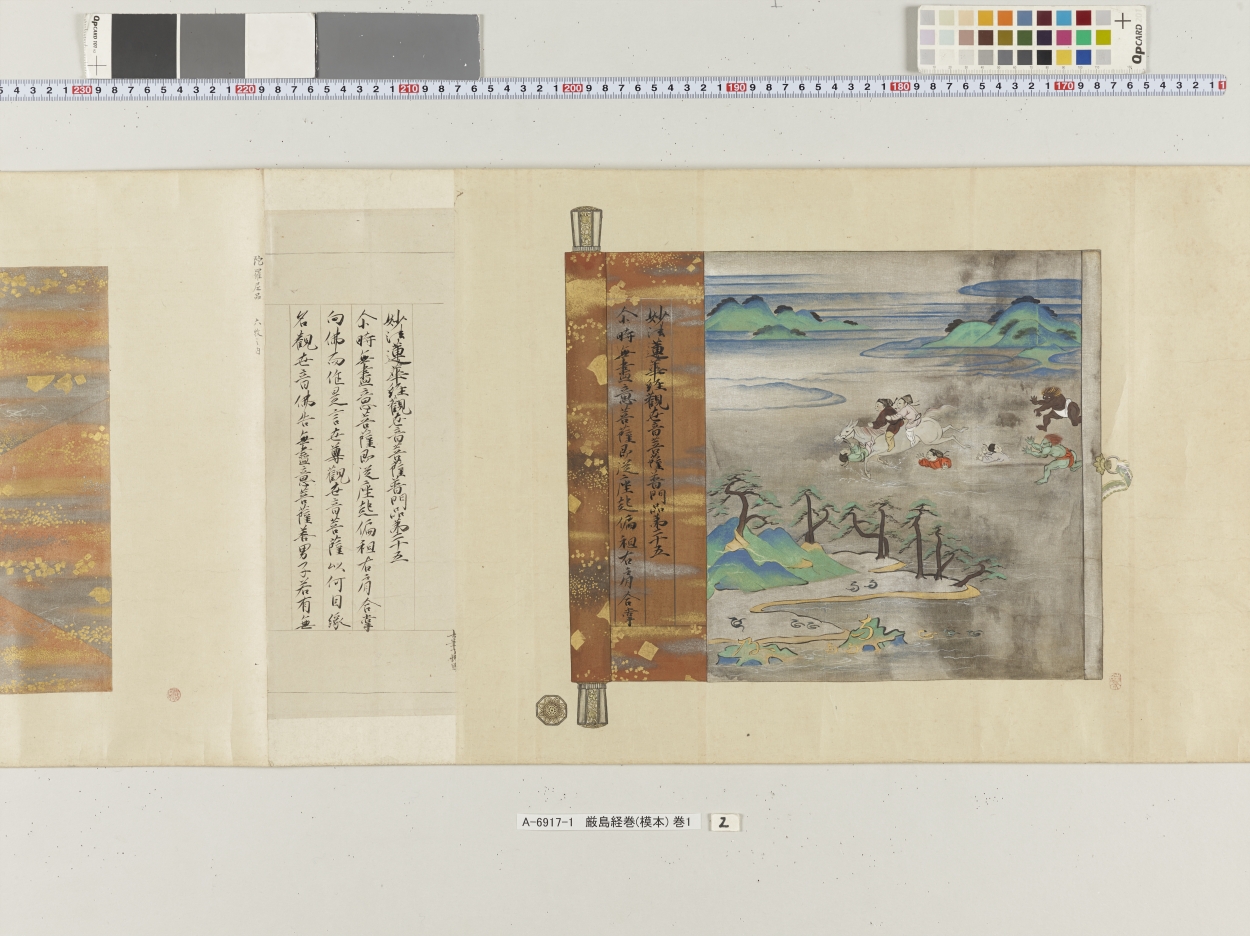 妙法蓮華經觀世音菩薩普門品第二十五
尒時無盡意菩薩即從座起偏袒右肩合掌
妙法蓮華經觀世音菩薩普門品第二十五
尒時無盡意菩薩即從座起偏袒右肩合掌
向佛而作是言世尊觀世音菩薩以何因縁
名觀世音佛告無盡意菩薩善男子若有無
陀羅尼品
A-6917-1 厳島経巻(模本) 巻1
2
QPCARD 101
QPCARD 201
230 9 8 7 6 5 4 3 2 1 220 9 8 7 6 5 4 3 2 1 210 9 8 7 6 5 4 3 2 1 200 9 8 7 6 5 4 3 2 1 190 9 8 7 6 5 4 3 2 1 180 9 8 7 6 5 4 3 2 1 170 9 8 7 6 5 4 3 2 1